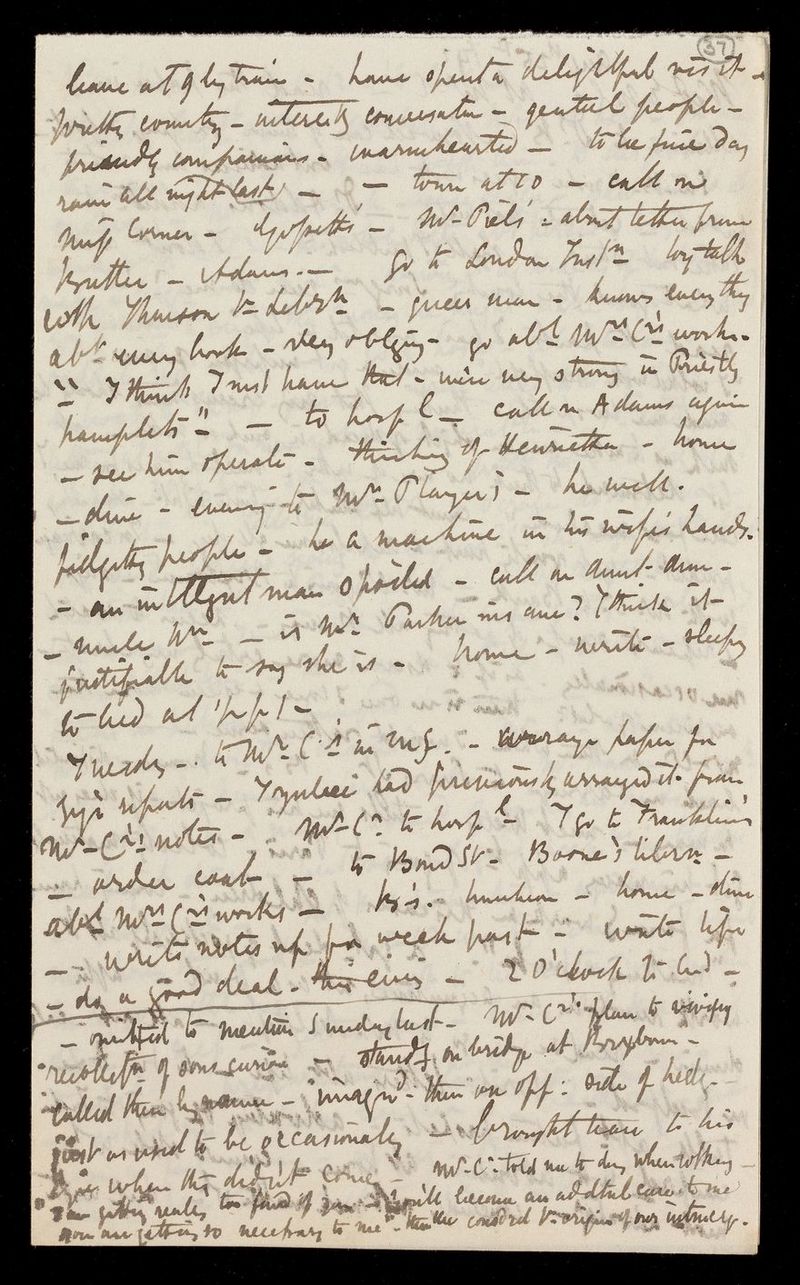 37
leave at 9 by train - have spent a delightful visit -
pretty country - interestg conversatn - genteel people -
friendly companions - warmhearted - to be fine day
rain all night (last) - - town at 10 - call on
Miss Corner - - Mr Piels' - about letter from
brother - Adams. - go to London Instn long talk
with Thomson - queer man - knows everythg
abt every book - very obligg - go abt Mrs Crs works -
"I think I must have that - we're very strong in Priestly
pamphlets" - to hospl - call on Adams again
- see him operate - thinking of Henrietta - home
- dine - evening to Mrs Players - he well.
fidgetty people - he a machine in his wife's hands.
- an intellgnt man spoiled - call on aunt
- uncle Wm - is Mrs Parker insane? I think it
justifiable to say she is - home - write - sleepy
to bed at 1/2 p 1 -
Tuesday - to Mr Cr's in mg. - arrange paper for
reports - had previously arranged it from
Mr Cr's notes - Mr Cr to hospl - I go to Franklin's
- order coat - to Bond St - Boone's -
abt Mrs Cr's works - luncheon - home - dine
- write notes up for week past - write life
- do a good deal - this eveng - 2 O'clock to bed -
- omitted to mention Sunday last - Mr Cr's plan to vivify
recollectn of sons - standg on bridge at Broxbourn -
called them by name - imagnd them on opp: side of hedge -
just as used to be occasionally - brought tears to his
eyes when they didn't come - Mr Cr told me to day when walking -
"I am getting really too fond of you - you'll become an addtnl care to me
you are getting so necessary to me" - then the origin of our intimacy.